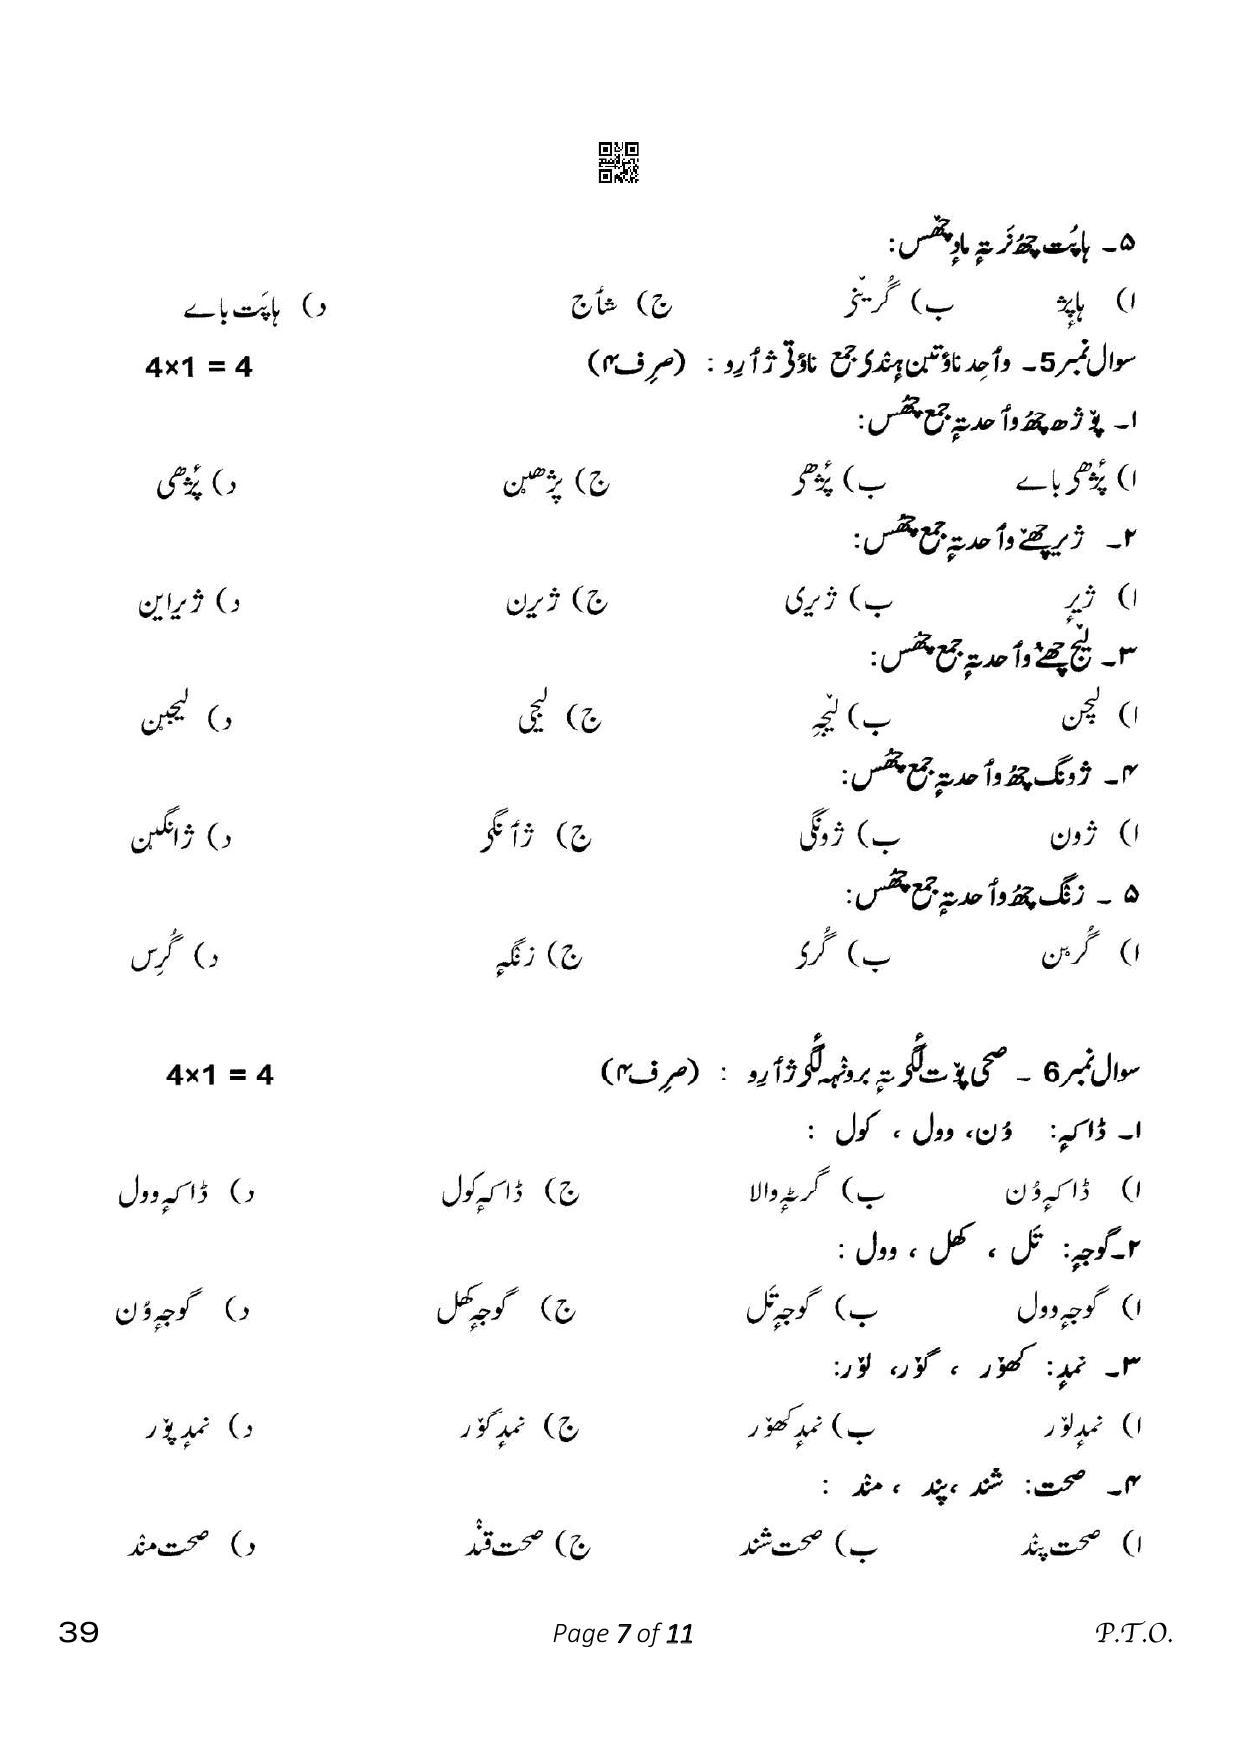 ۵۔ ہاپُت چھُ نَر تہٕ مادٕ چھَس:
ا) ہاپٕژ ب) گُرینۍ ج) شأج د) ہاپَت باے
سوال نمبر5۔ وٲحِد ناوٕتین ہٕنٛدۍ جمع ناوٕتۍ ژٲرِو : (صرِف ۴) 4×1 = 4
۱۔ پوٚژھ چھُ وٲحد تہٕ جمع چھُس:
ا) پٔژھۍ باے ب) پٔژھۍ ج) پژھین د) پٔژھی
۲۔ ژیر چھےٚ وٲحد تہٕ جمع چھَس:
ا) ژیرٕ ب) ژیری ج) ژیرن د) ژیراین
۳۔ لیٚج چھےٚ وٲحد تہٕ جمع چھَس:
ا) لیجن ب) لیٚجہِ ج) لیجی د) لیجین
۴۔ ژونگ چھُ وٲحد تہٕ جمع چھُس:
ا) ژون ب) ژونگی ج) ژٲنگۍ د) ژانگین
۵ ۔ زنگ چھُ وٲحد تہٕ جمع چھَس:
ا) گُرین ب) گُرۍ ج) زنگہٕ د) گُرِس
سوال نمبر6 ۔ صحی پوٚت لٔگۍ تہٕ برونٛہہ لٔگۍ ژٲرِو : (صرِف ۴) 4×1 = 4
۱۔ ڈاکہٕ: وُن، وول ، کول :
ا) ڈاکہٕ وُن ب) گرٹہٕ والا ج) ڈاکہٕ کول د) ڈاکہٕ وول
۲۔گوجہٕ: تَل ، کھل ، وول :
ا) گوجہٕ وول ب) گوجہٕ تَل ج) گوجہٕ کھل د) گوجہٕ وُن
۳۔ نمدٕ: کھوٚر ، گوٚر، لوٚر:
ا) نمدٕ لوٚر ب) نمدٕ کھوٚر ج) نمدٕ گوٚر د) نمدٕ پوٚر
۴۔ صحت: شند ،پند ، منٛد :
ا) صحت پنٛد ب) صحت شند ج) صحت قنٛد د) صحت منٛد
39 Page 7 of 11 P.T.O.